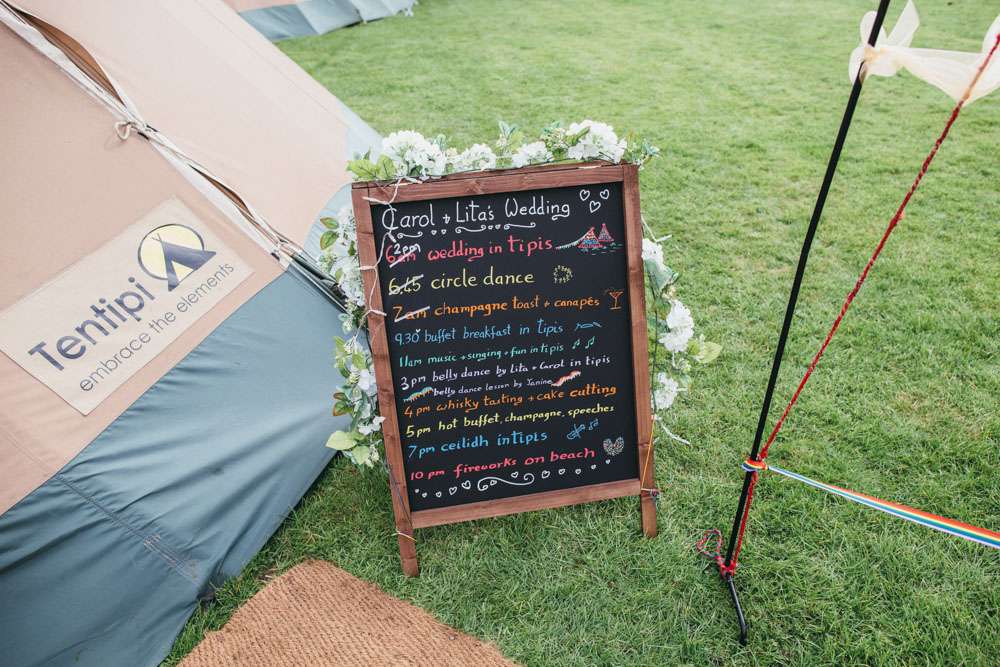 Tentipi
embrace the elements
Carol + Lita's Wedding
2pm
6am wedding in tipis
6.45 circle dance
7am champagne toast + canapés
9.30 buffet breakfast in tipis
11am music + singing + fun in tipis
3 pm belly dance by Lita + Carol in tipis
belly dance lesson by Janine
4 pm whisky tasting + cake cutting
5 pm hot buffet, champagne, speeches
7 pm ceilidh in tipis
10 pm fireworks on beach